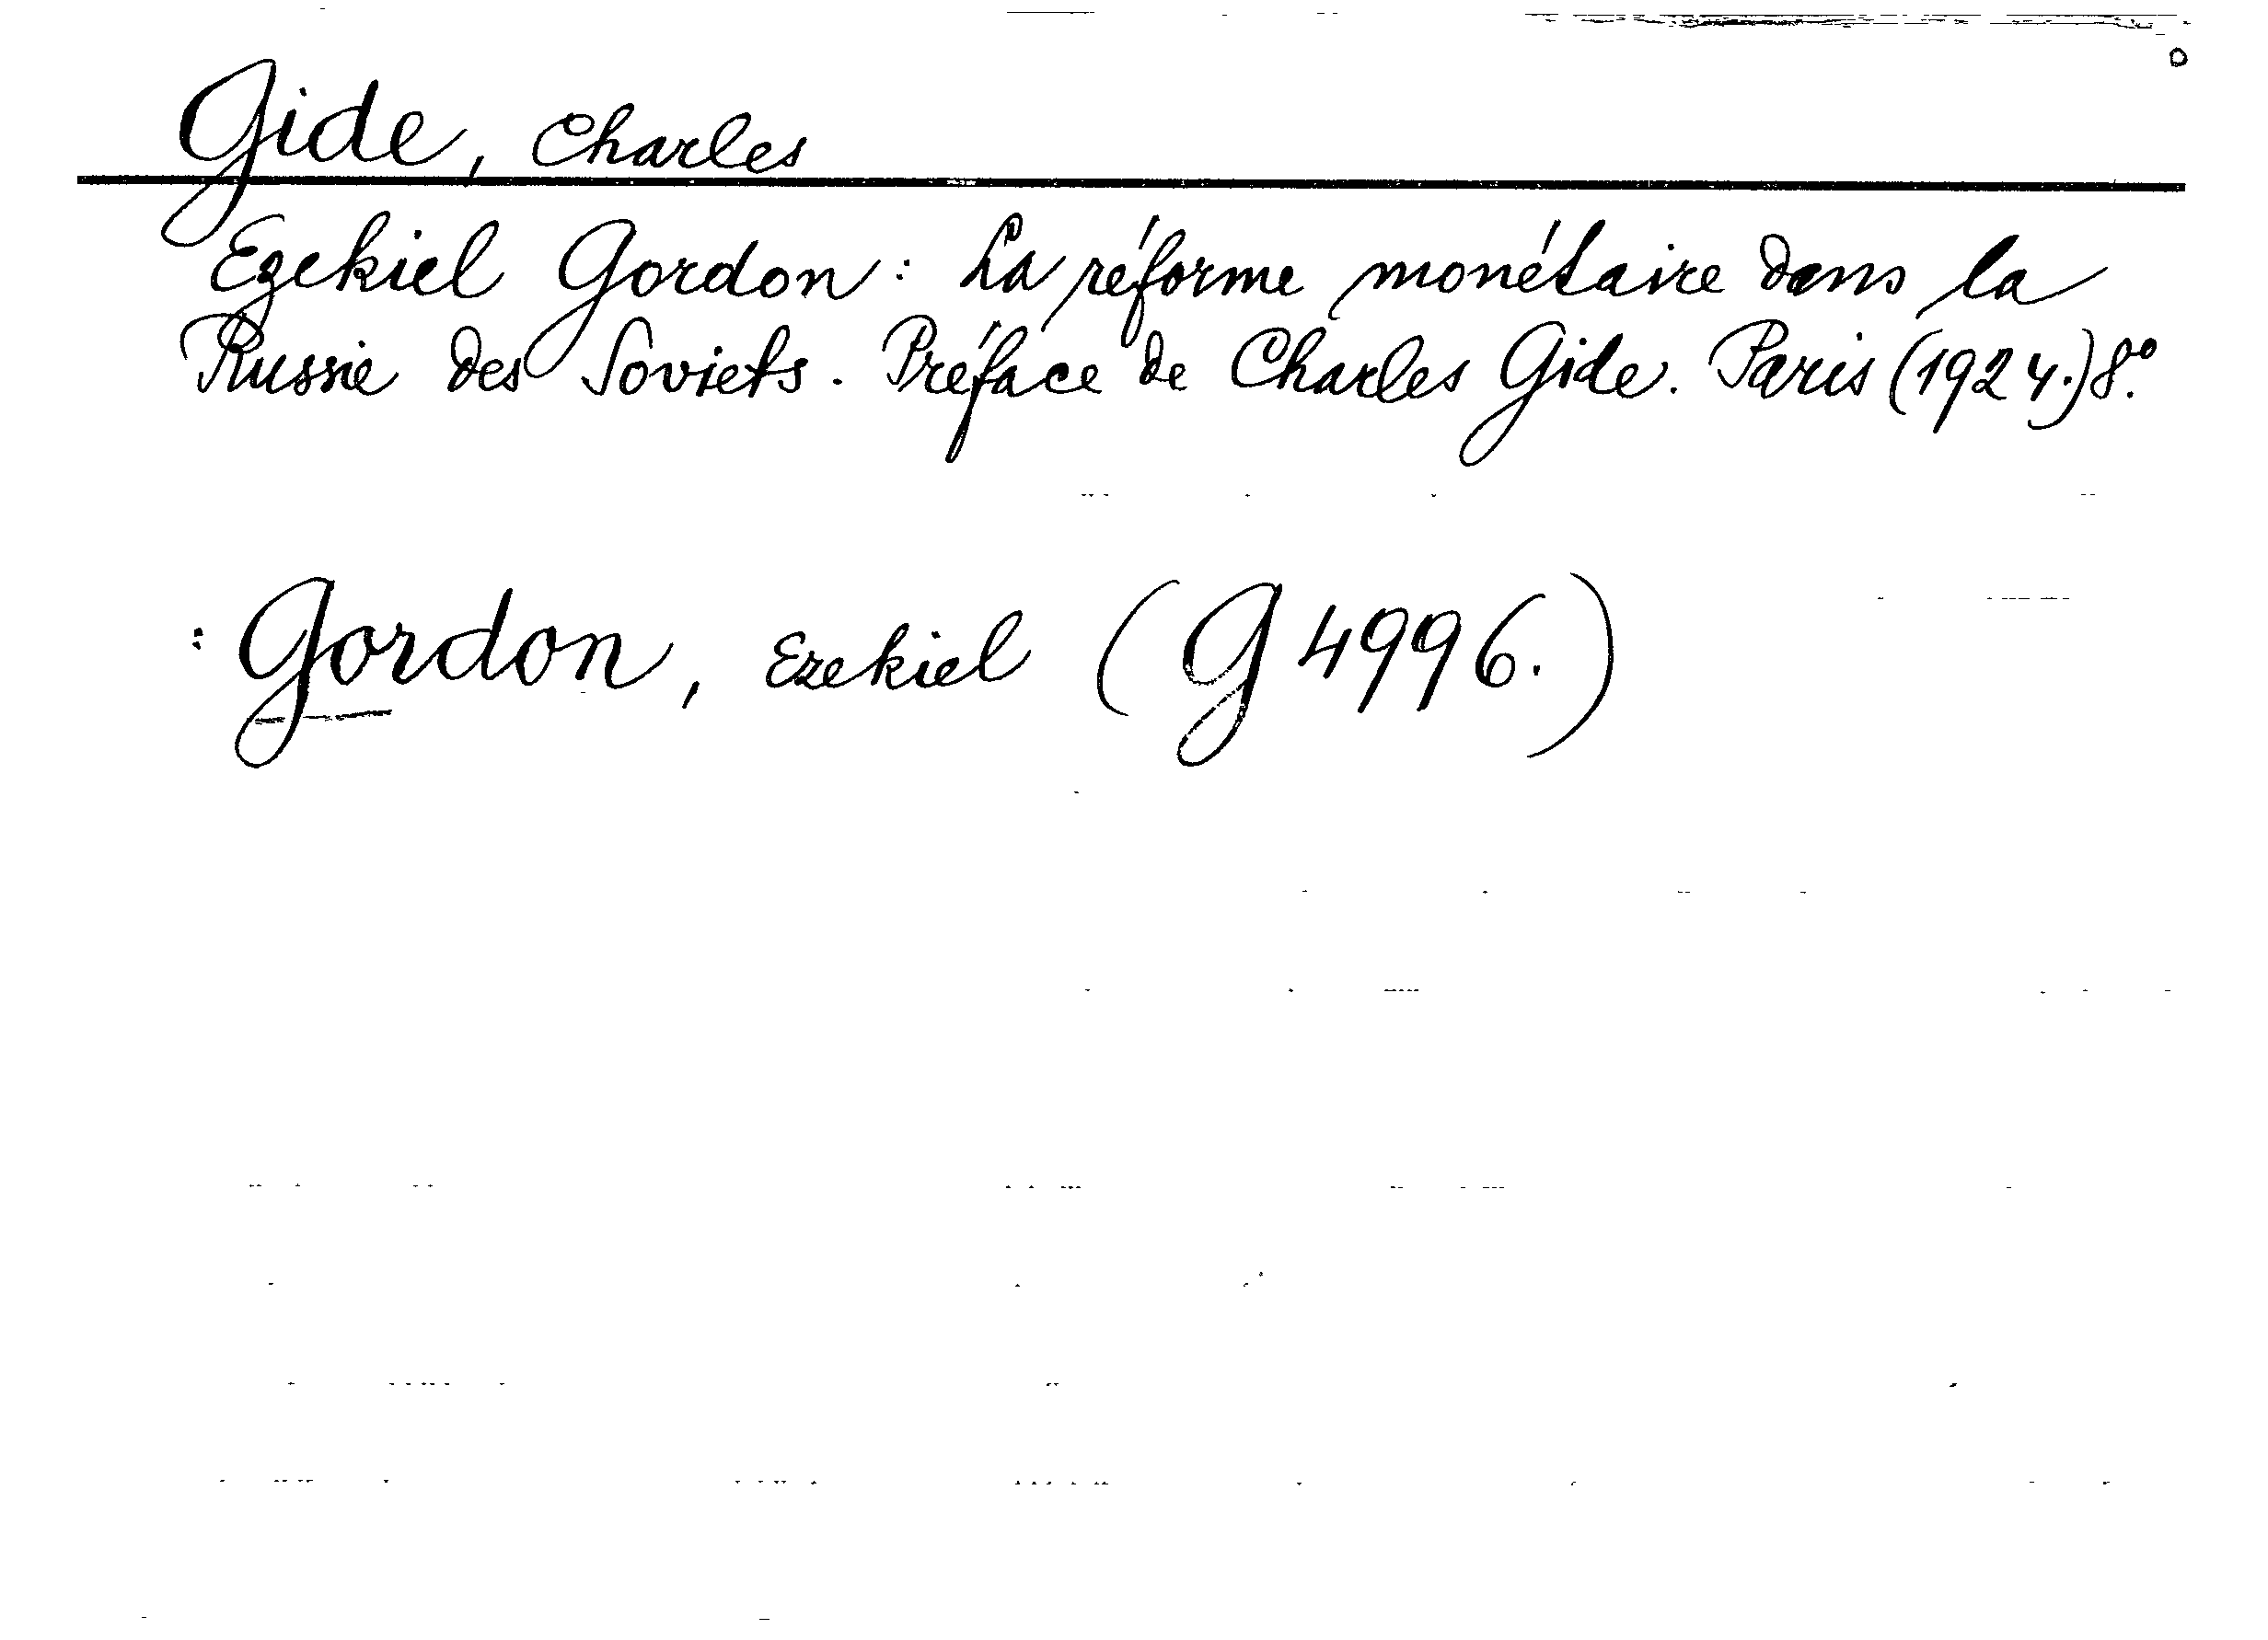 Gide, Charles
Ezekiel Gordon: La réforme monétaire dans la
Russie des Soviets. Préface de Charles Gide. Paris (1924.) 8°.
: Gordon, Ezekiel (G 4996.)